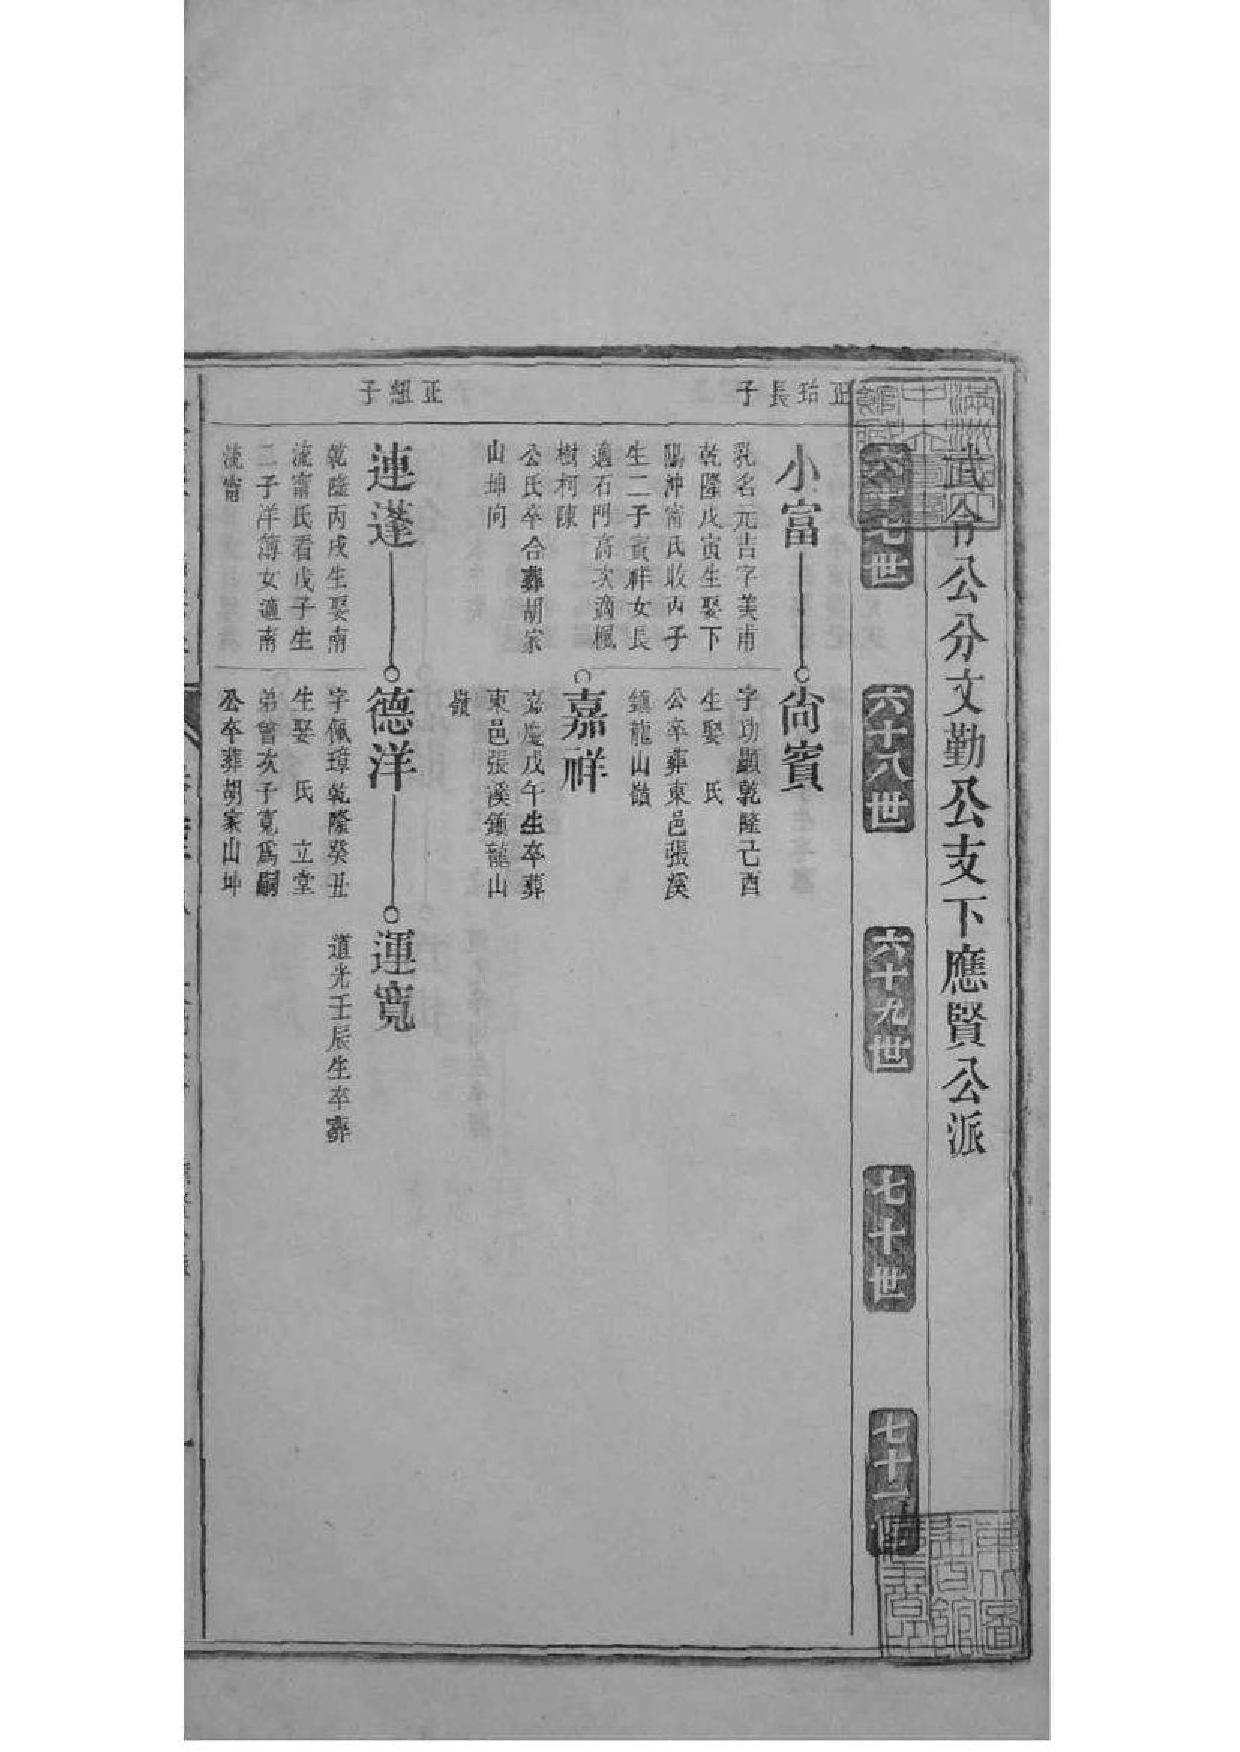 武令公分文勤公支下應賢公派
六十七世
六十八世
六十九世
七十世
七十一世
正珆長子
小富
乳名元吉字美甫
乾隆戊寅生娶下
陽沖甯氏收丙子
生二子賓祥女長
適石門高次適楓
樹柯陳
公氏卒合葬胡家
山坤向
尚賓
字功顯乾隆己酉
生娶 氏
公卒葬東邑張溪
鍾龍山嶺
嘉祥
嘉慶戊午生卒葬
東邑張溪鍾龍山
嶺
正紐子
連蓬
乾隆丙戌生娶南
流甯氏看戊子生
二子洋簿女適南
流甯
德洋
字佩璋乾隆癸丑
生娶 氏 立堂
弟曾次子寬為嗣
公卒葬胡家山坤
運寬
道光壬辰生卒葬